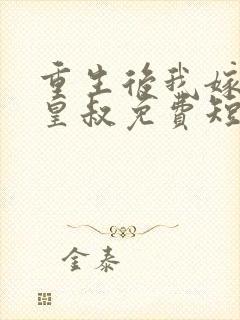 重生后我嫁
皇叔免費短
金泰